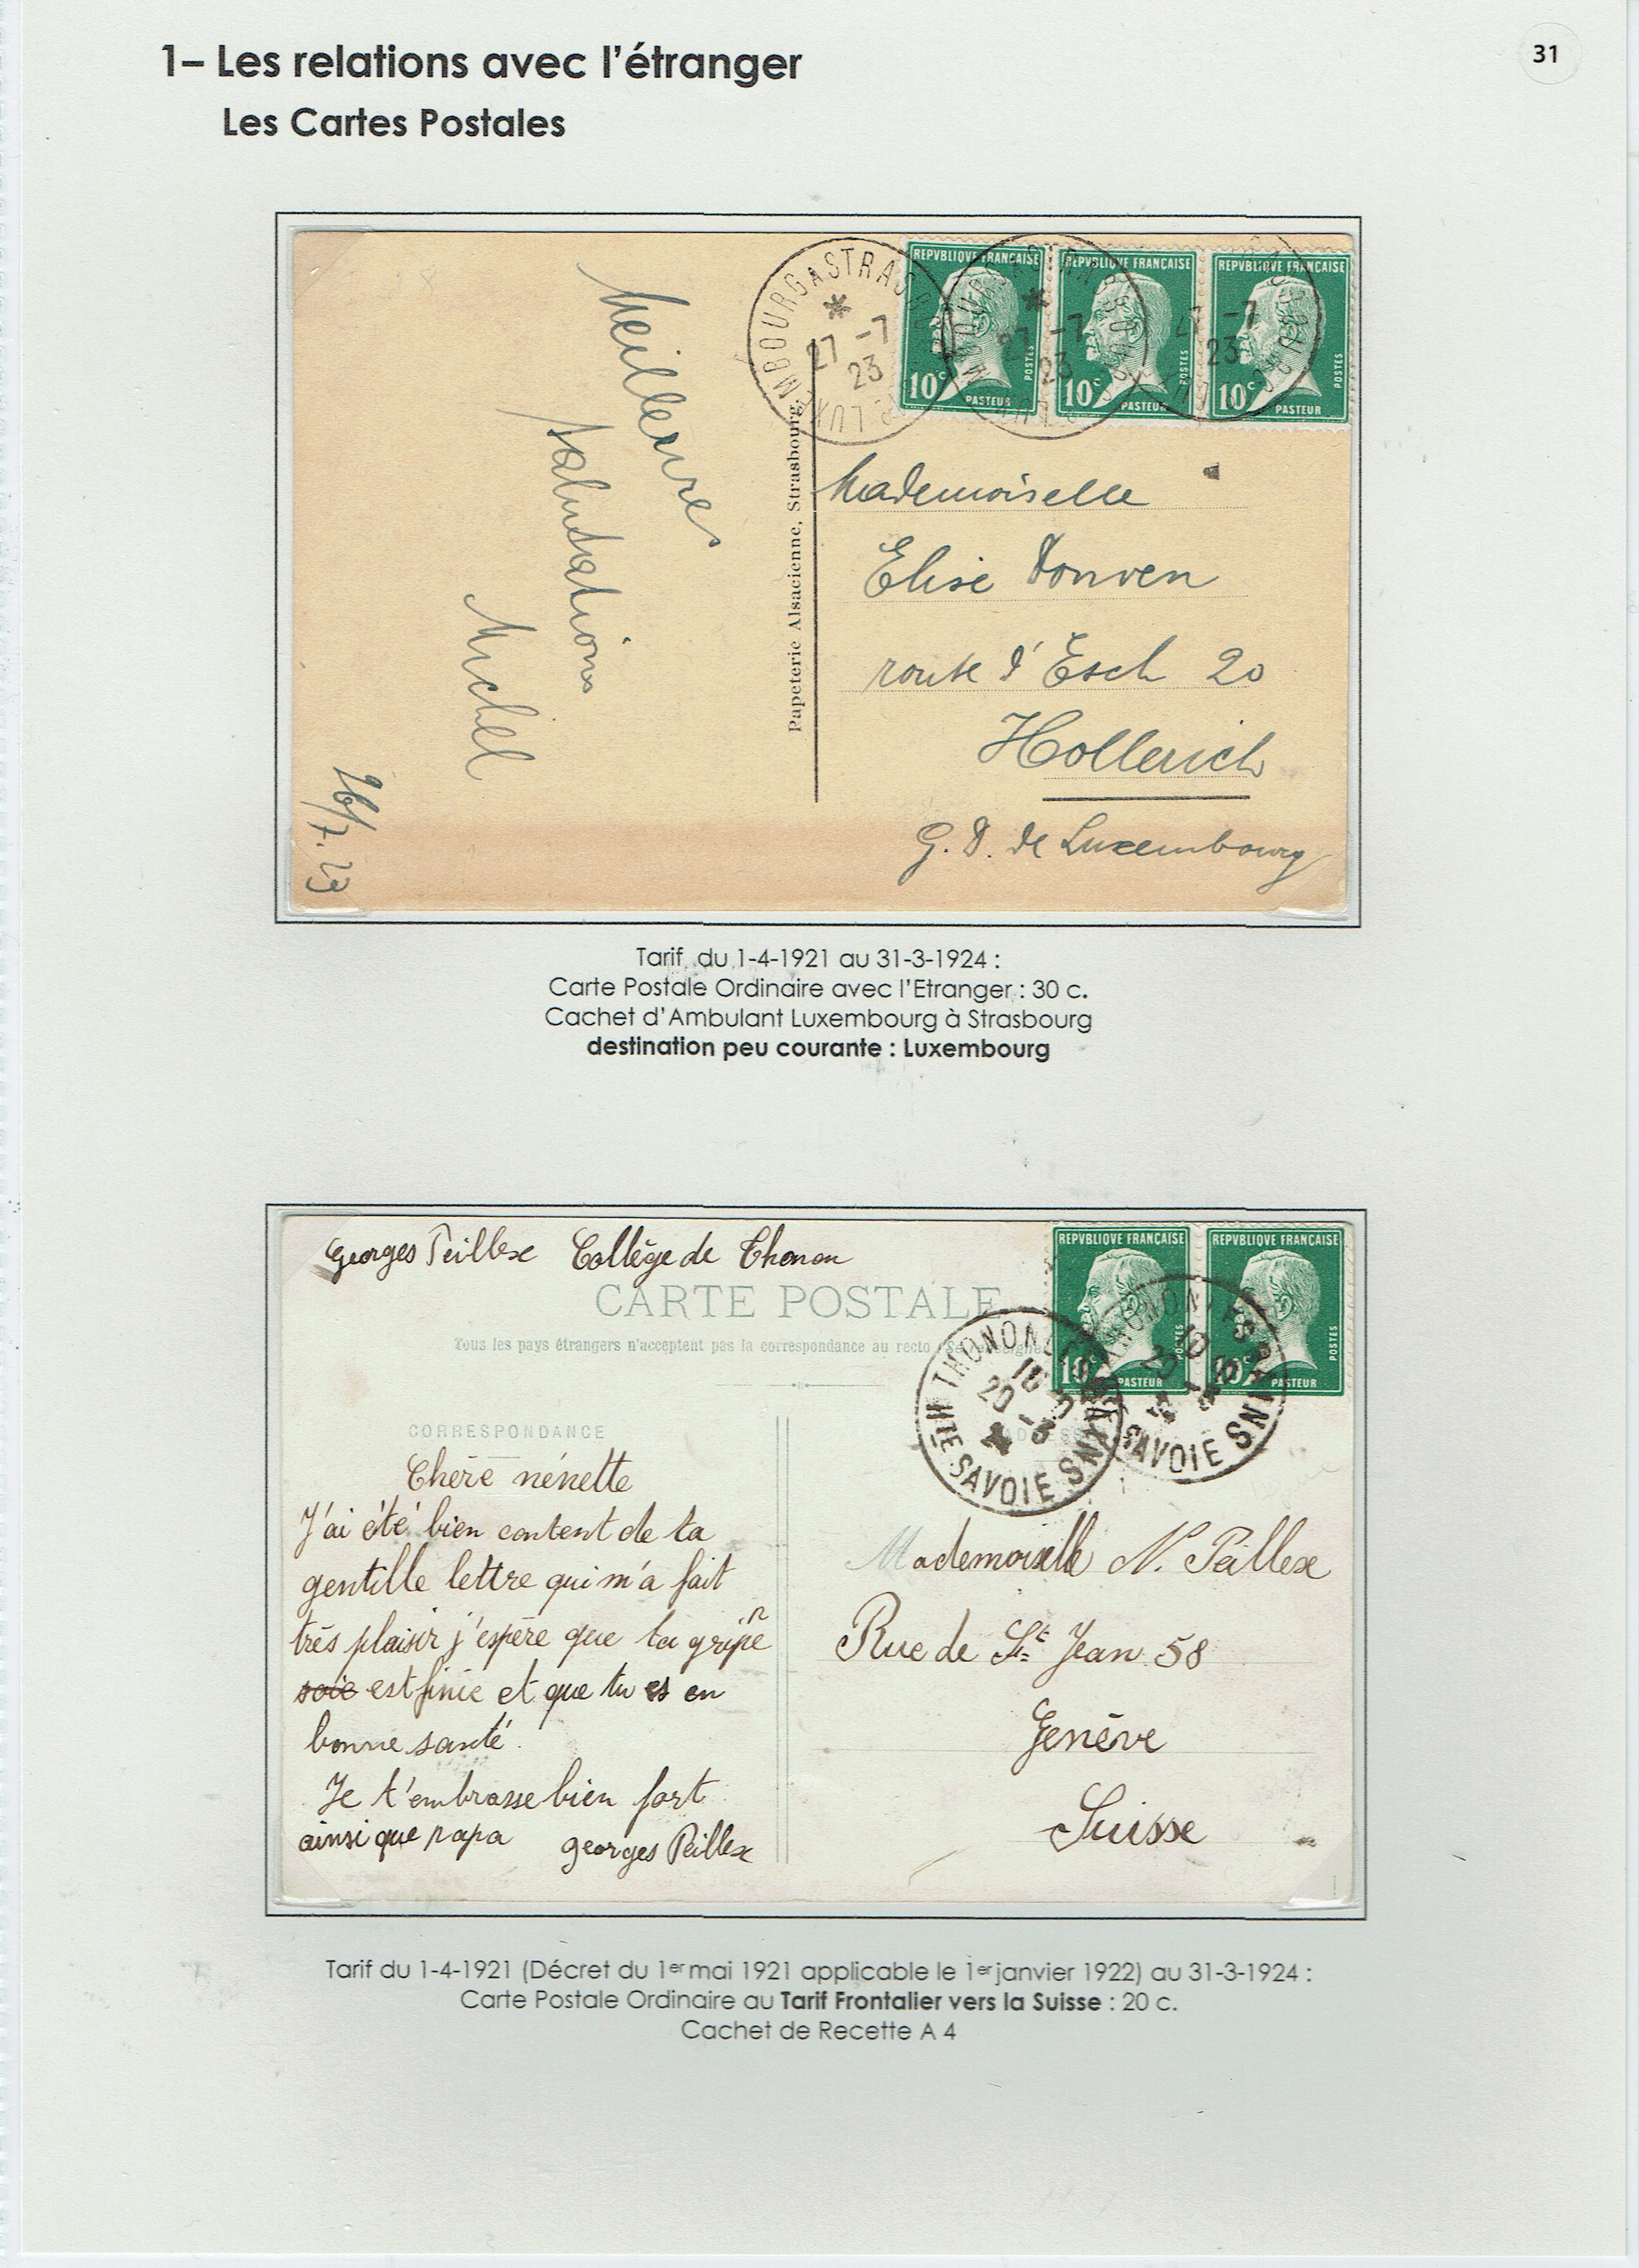 1– Les relations avec l'étranger
31
Les Cartes Postales
REPVBLIQVE FRANÇAISE
10c
POSTES
PASTEUR
REPVBLIQVE FRANÇAISE
10c
POSTES
PASTEUR
REPVBLIQVE FRANÇAISE
10c
POSTES
PASTEUR
LUXEMBOURG A STRASBOURG
27 -7
23
27 -7
23
27 -7
23
Meilleures
salutations
Michel
26/7.23
Papeterie Alsacienne, Strasbourg.
Mademoiselle
Elise Donven
route d'Esch 20
Hollerich
G. D. de Luxembourg
Tarif du 1-4-1921 au 31-3-1924 :
Carte Postale Ordinaire avec l'Etranger : 30 c.
Cachet d'Ambulant Luxembourg à Strasbourg
destination peu courante : Luxembourg
Georges Peillex Collège de Thonon
CARTE POSTALE
Tous les pays étrangers n'acceptent pas la correspondance au recto (Se renseigne
REPVBLIQVE FRANÇAISE
10c
POSTES
PASTEUR
REPVBLIQVE FRANÇAISE
10c
POSTES
PASTEUR
THONON LES BAINS
HTE SAVOIE
THONON LES BAINS
SAVOIE
CORRESPONDANCE
Chère nénette
J'ai été bien content de ta
gentille lettre qui m'a fait
très plaisir j'espère que ta gripe
soie est finie et que tu es en
bonne santé.
Je t'embrasse bien fort
ainsi que papa Georges Peillex
Mademoiselle N. Peillex
Rue de St Jean 58
Genève
Suisse
Tarif du 1-4-1921 (Décret du 1er mai 1921 applicable le 1er janvier 1922) au 31-3-1924 :
Carte Postale Ordinaire au Tarif Frontalier vers la Suisse : 20 c.
Cachet de Recette A 4